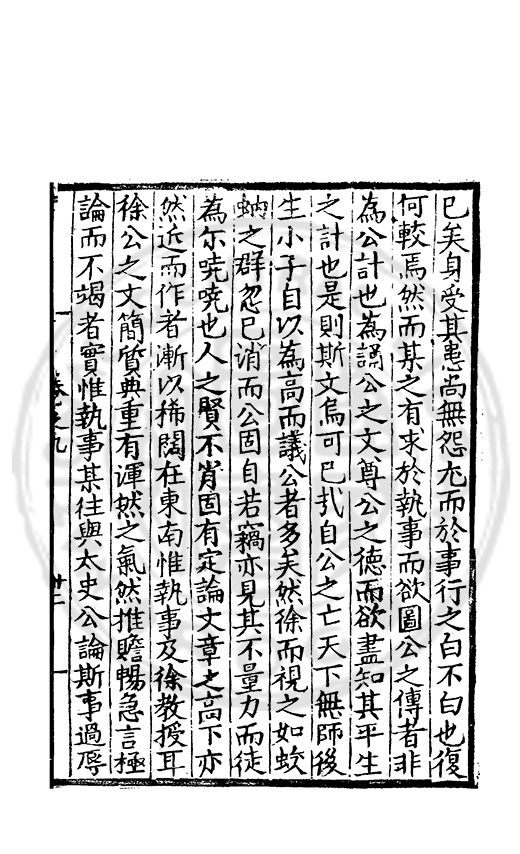 已矣身受其患尚無怨尤而於事行之白不白也復
何較焉然而某之有求於執事而欲圖公之傳者非
為公計也為誦公之文尊公之德而欲盡知其平生
之計也是則斯文烏可已㢤自公之亡天下無師後
生小子自以為高而議公者多矣然徐而視之如蚊
蚋之群忽已消而公固自若竊亦見其不量力而徒
為尓嘵嘵也人之賢不肖固有定論文章之高下亦
然近而作者漸以稀闊在東南惟執事及徐教授耳
徐公之文簡質典重有渾然之氣然推贍暢急言極
論而不竭者實惟執事某往與太史公論斯事過辱
卷之九
廿二